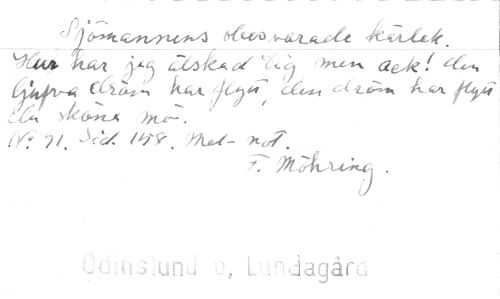 Sjömannens obesvarade kärlek.
Hur har jag älskad dig men ack! den
ljufva dröm har flytt, den dröm har flytt
du sköna mö.
No 71. Sid. 148. Met- not.
F. Möhring.
Odinslund o, Lundagård